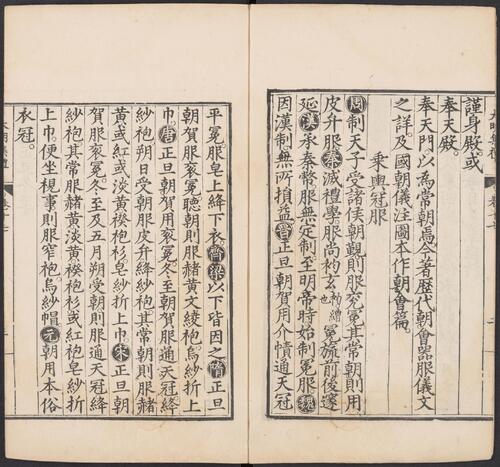 謹身殿或
奉天殿
奉天門以為常朝焉今著歷代朝會器服儀文
之詳及國朝儀注圖本作朝會篇
乘輿冠服
周天子受諸侯朝覲則服衮冕其常朝則用
皮弁服秦滅禮學服尚袀玄袀繒也冕旒前後邃
延漢承秦幣服無定制至明帝時始制冕服魏
因漢制無所損益晉正旦朝賀用介幘通天冠
平冕服皂上絳下衣齊梁以下皆因之隋正旦
朝賀服衮冕聽朝則服赭黃文綾袍烏紗折上
巾唐正旦朝賀用衮冕冬至朝賀服通天冠絳
紗袍朔日受朝服皮弁絳紗袍其常朝則服赭
黃或紅或淡黃襖袍杉皂紗折上巾宋正旦朝
賀服衮冕冬至及五月朔受朝則服通天冠絳
紗袍其常服赭黃淡黃襖袍杉或紅袍皂紗折
上巾便坐視事則服窄袍烏紗帽元朝用本俗
衣冠